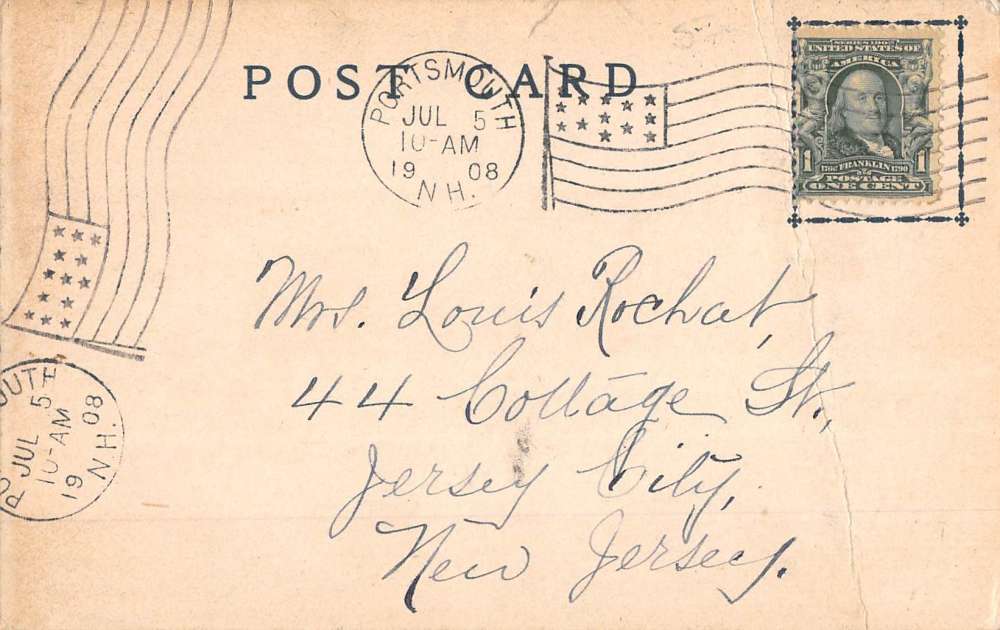 POST CARD
PORTSMOUTH
JUL 5
10-AM
19 08
N.H.
SERIES 1902
UNITED STATES OF
AMERICA
1 1
1706 FRANKLIN 1790
POSTAGE
ONE CENT
Mrs. Louis Rochat,
44 Cottage St.,
Jersey City,
New Jersey.
OUTH
JUL 5
10-AM
19 08
N.H.